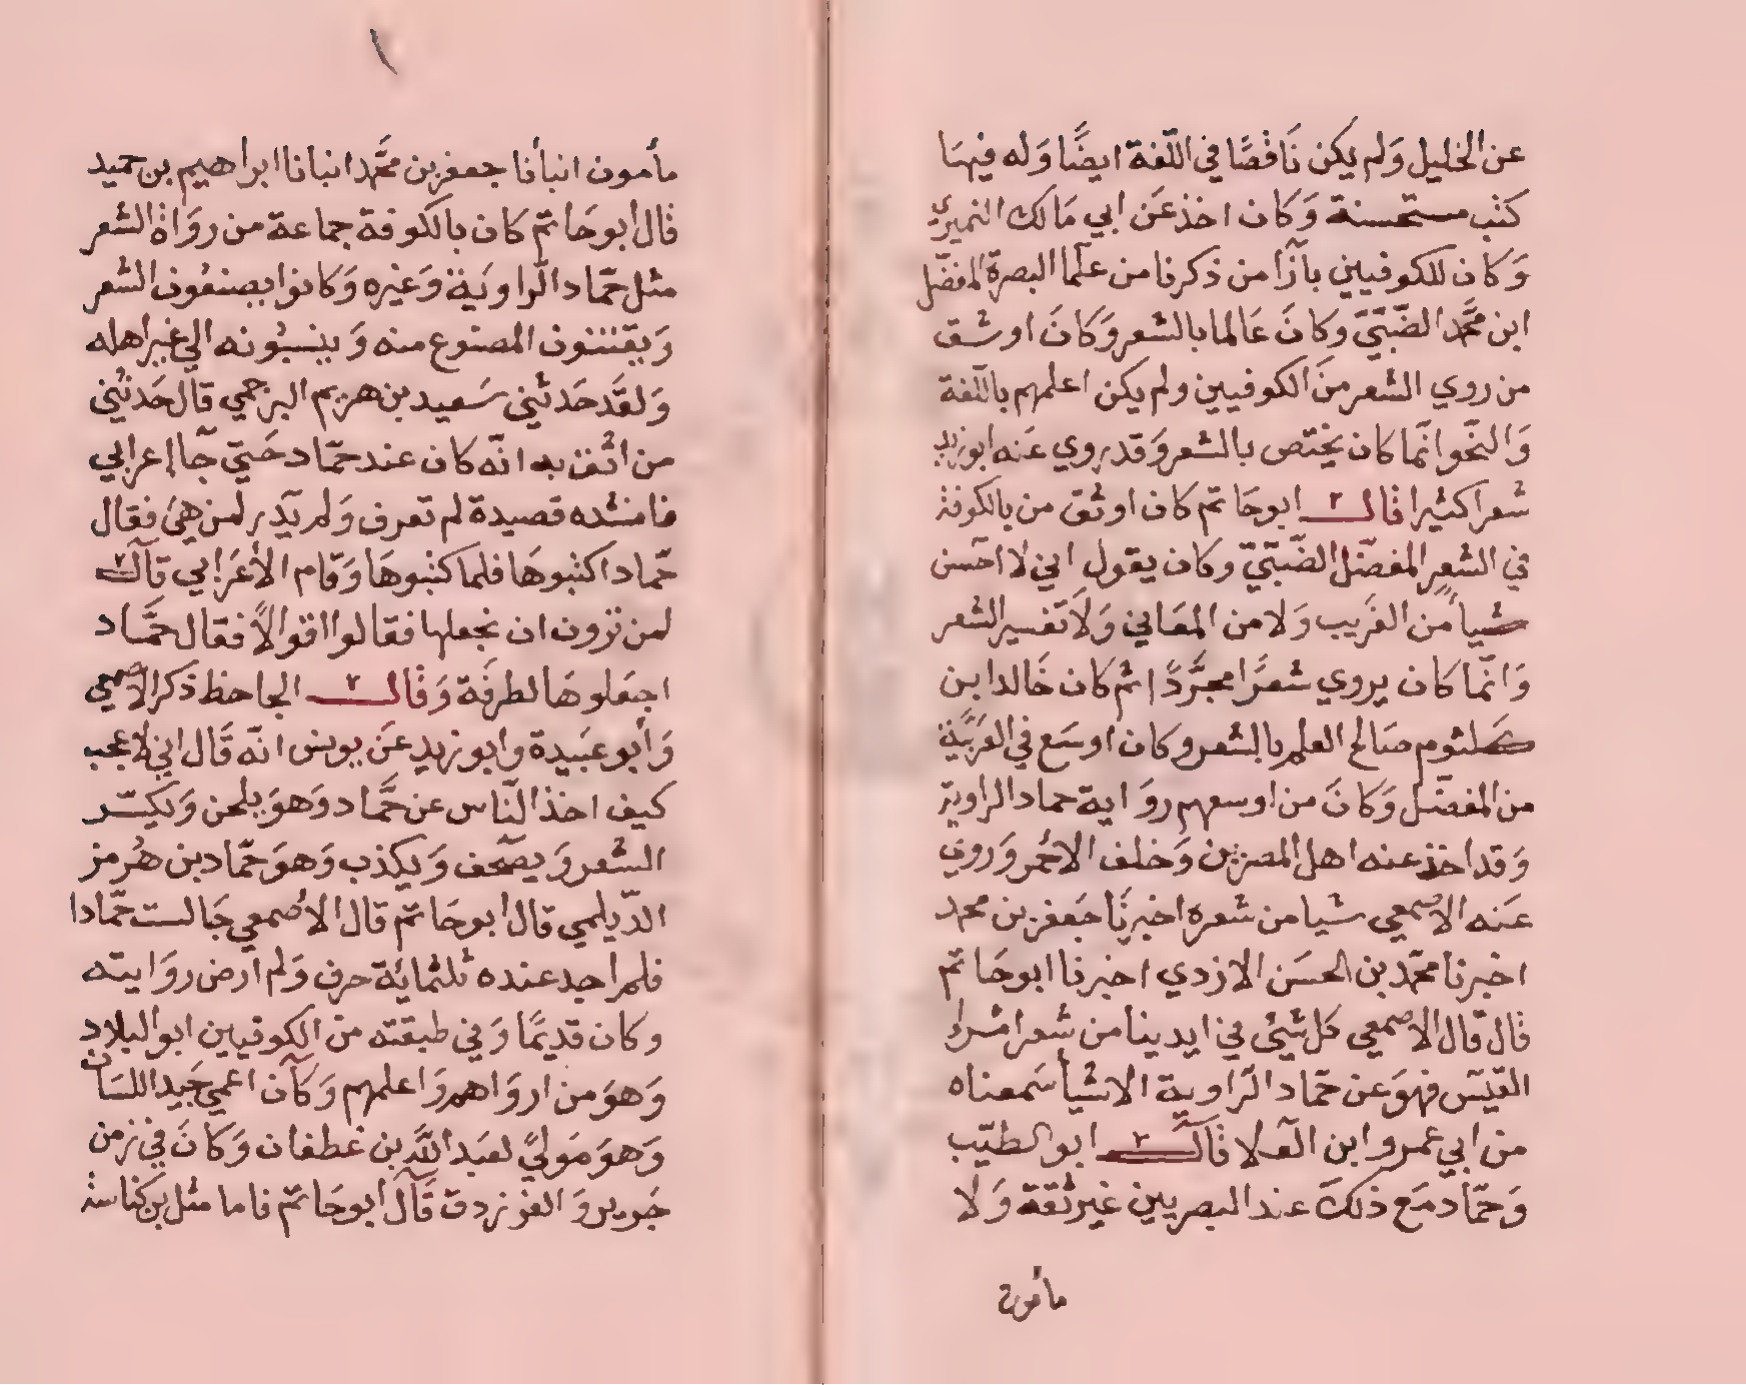 عن الخليل وَلم يكن نَاقصًا في اللّغة ايضًا وَله فيهَا
كتب مستحسنة وَكان اخذ عَن ابي مَالك النميري
وَكان للكوفيين بآزا من ذكرنا من علما البصرة المفضّل
ابن محمَّد الضّبّيّ وَكانَ عَالما بالشعر وَكانَ اوشق
من روي الشعر منَ الكوفيين ولم يكن اعلمهم باللّغة
وَالنحَو انّما كان يختص بالشعر وَقد روي عَنه ابوزيد
شعرا كثيرا قالــ ابوحَاتم كان اوثق من بالكوفة
في الشعر المفضّل الضّبّيّ وكان يقول اني لا احسن
شيأ من الغَريب وَلا من المعَاني وَلاَ تفسير الشعر
وَانّما كان يروي شعرًا مجرَّدًا ثم كان خَالد ابن
كلثوم صَالح العلم بالشعر وكان اوسَع في العَرَبيّة
من المفضّل وَكانَ من اوسعهم روَاية حماد الراوية
وَقد اخذ عنه اهل المصرين وَخلف الاحْمر وَروي
عَنه الاصْمعي شيا من شعره اخبرنَا جَعفر بن محمد
اخبرنا محمّد بن الحسَن الازدي اخبرنا ابوحَاتم
قال قال الاصمعي كل شيْئ في ايدينا من شعر امْرئ
القيْس فهوَ عن حمّاد الرّاوية الا شيأ سَمعناه
من ابي عمرو ابن العَلا قالــ ابو الطيّب
وَحمّاد مَع ذلكَ عند البصريين غير ثقة وَلا
مأمون
١
مأمون انبأنا جعفر بن محمَّد انبانا ابراهيم بن حميد
قال ابوحَاتم كان بالكوفة جماعة من روَاة الشعر
مثل حمّاد الرّاويَة وَغيره وَكانوا يصنعُون الشعر
وَيقتنون المصنوع منه وَينسبُونه الي غير اهله
وَلقَد حَدثني سَعيد بن هريم البرجمي قال حَدثني
من اثق به انّه كان عند حمّاد حَتي جَآ اعرابي
فانشده قصيدة لم تعرف وَلم يَدر لمن هيَ فقال
حمّاد اكتبوهَا فلما كتبوهَا وَقام الأعرَابي قالــ
لمن ترون ان نجعلها فقالوا اقوالاً فقال حمَّاد
اجعَلوهَا لطرفَة وَقالــ الجاحظ ذكر الاصمعي
وَأبو عبَيدة وابو زيد عَن يونس انّه قَال اني لاعجب
كيف اخذ النّاس عن حمَّاد وَهوَ يلحن وَيكسّر
الشعر وَيصحّف وَيكذب وَهوَ حمّاد بن هُرمز
الدّيلمي قال ابوحَاتم قال الأصْمعي جَالست حمّادا
فلم اجد عنده ثلثمائة حرف وَلم ارض روَايته
وكان قديمًا وَفي طبقته منَ الكوفيين ابو البلاد
وَهوَ من اروَاهم وَاعلمهم وَكان اعمي جَيد اللسَان
وَهوَ مَوليً لعَبد اللَّه بن غطفان وَكانَ في زمن
جَرير وَ الفرزدق قَال ابوحَاتم فاما مثل بن كناسة